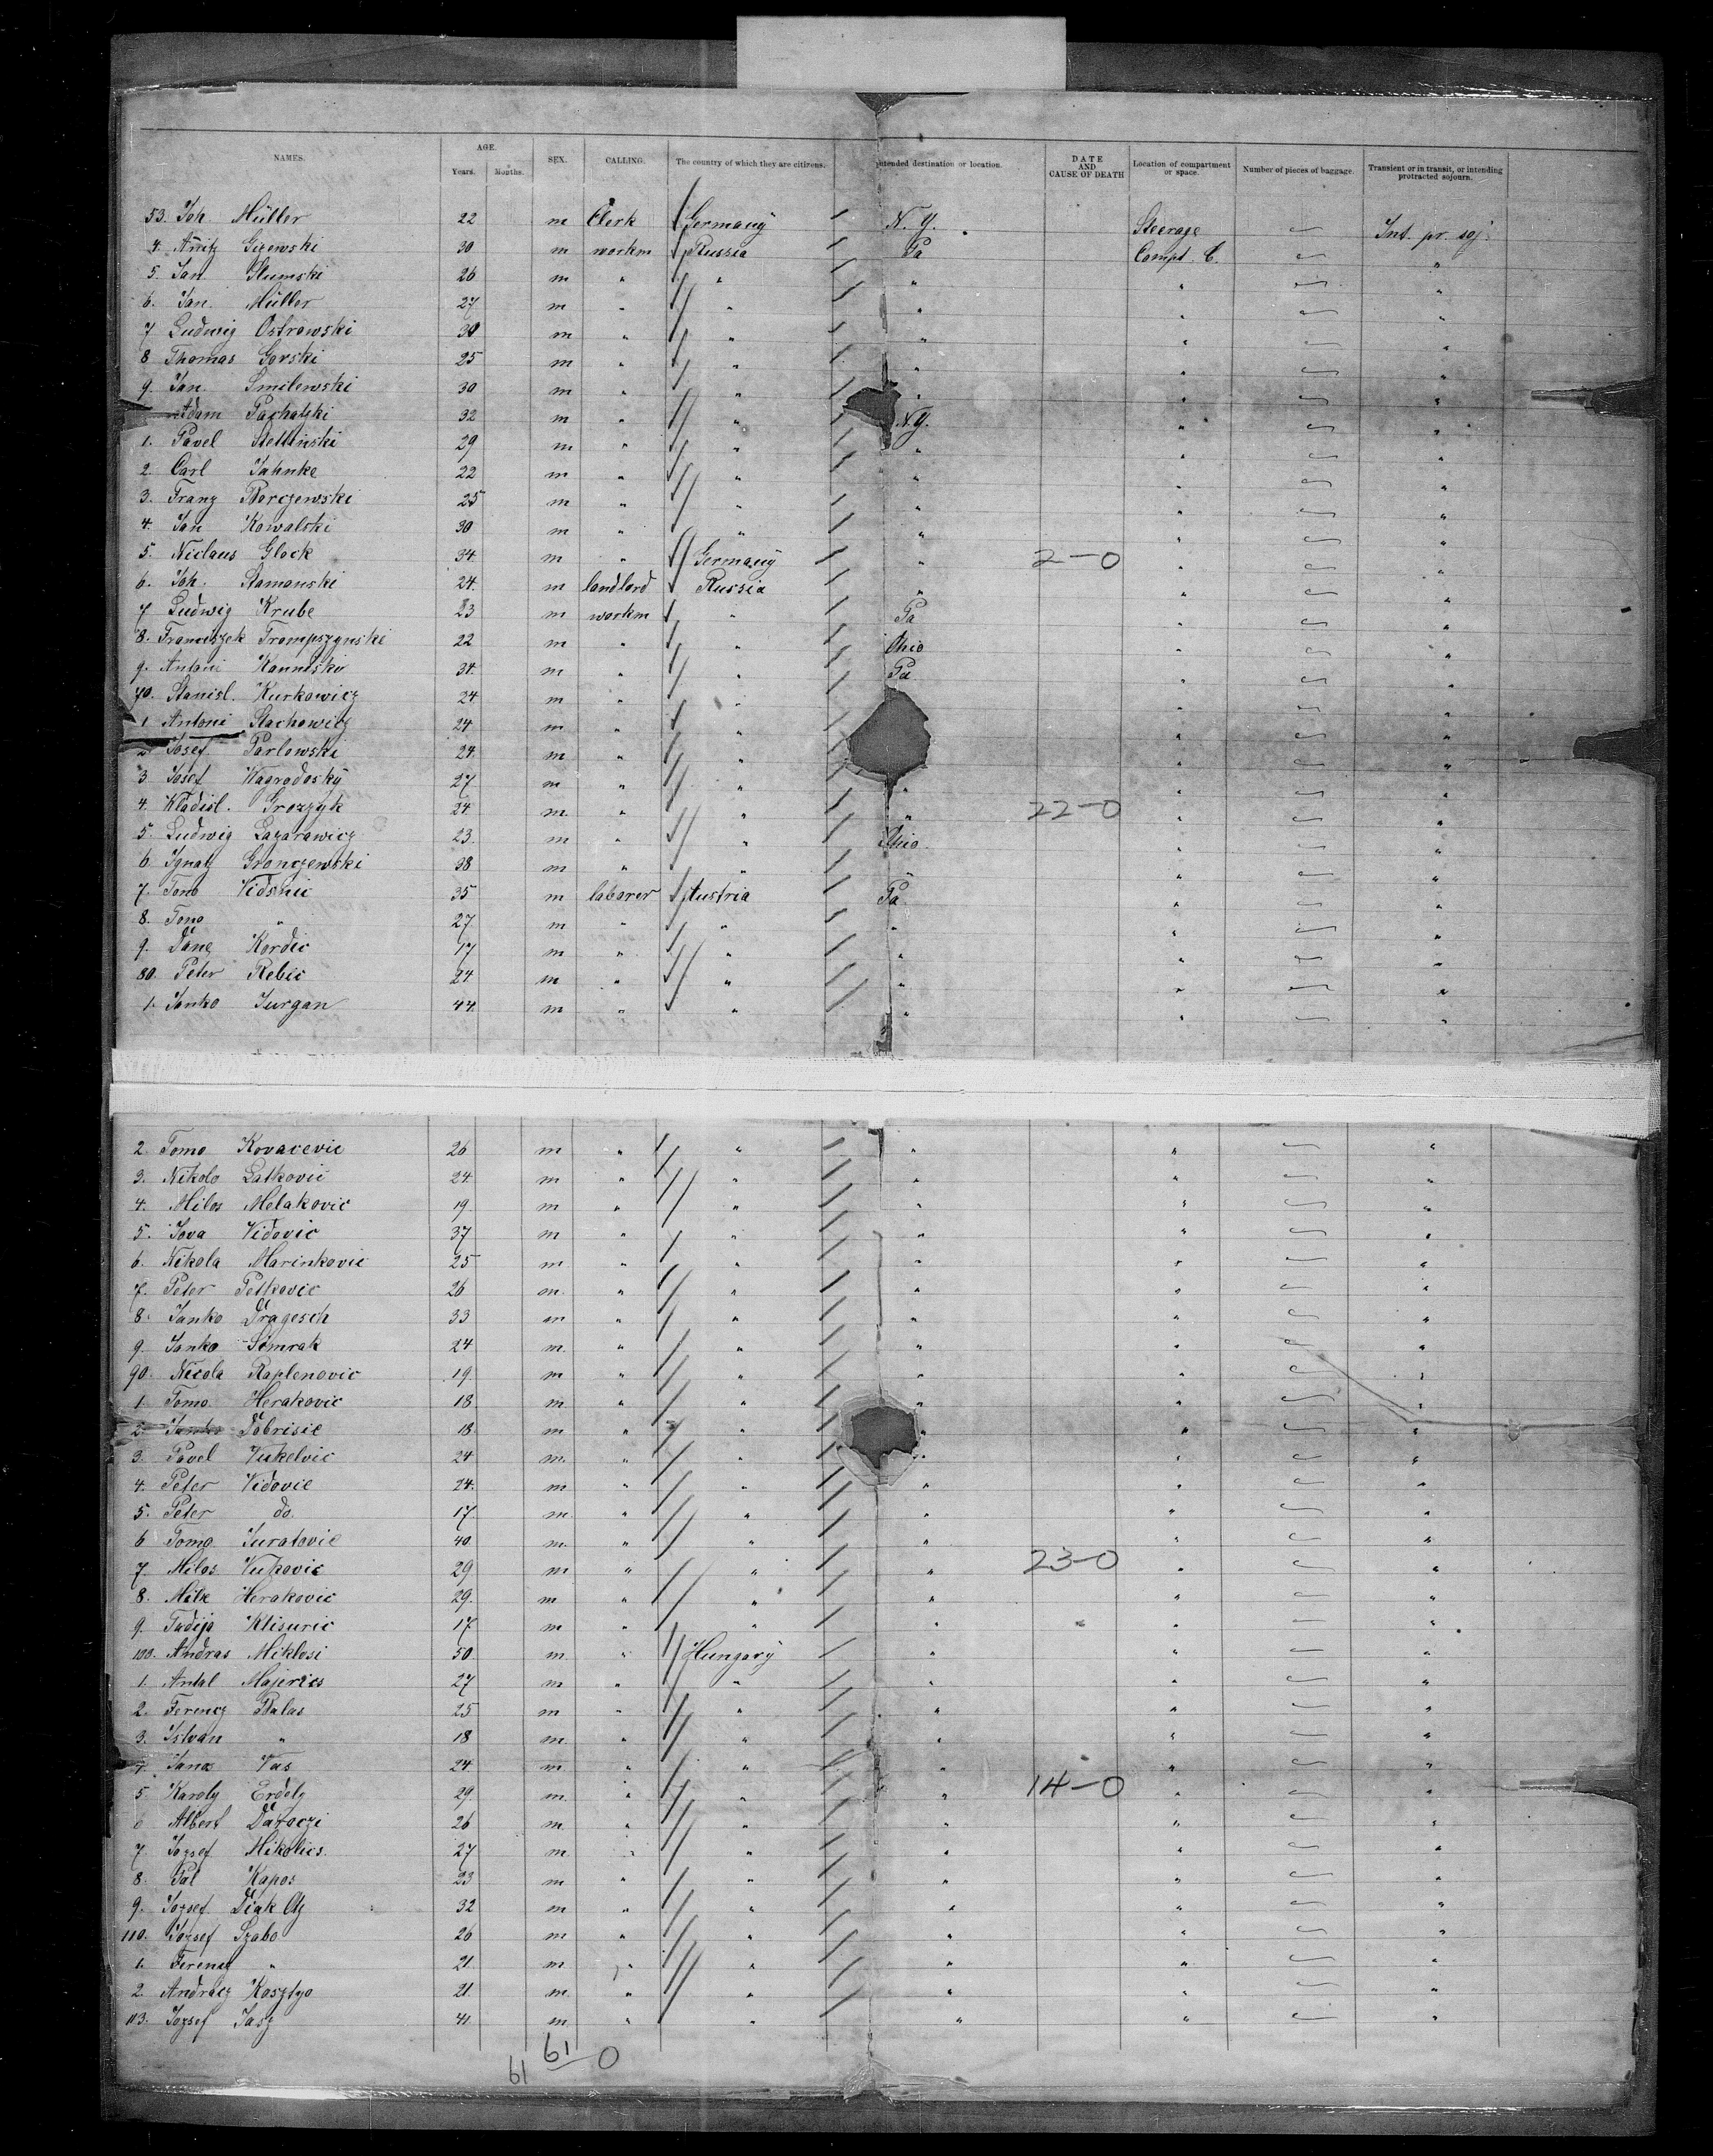 NAMES. AGE. Years. Months. SEX. CALLING. The country of which they are citizens. Intended destination or location. DATE AND CAUSE OF DEATH Location of compartment or space. Number of pieces of baggage. Transient or in transit, or intending protracted sojourn.
53. Joh. Müller 22 m Clerk Germany N.Y. Steerage Int. pr. soj.
4. Gizewski 30 m workm Russia Pa Compt. C. "
5. Jan Slumski 26 m " " " " "
6. Jan Müller 27 m " " " " "
7 Ludwig Ostrowski 30 m " " " " "
8 Thomas Gorski 25 m " " " " "
9. Jan Smilewski 30 m " " " " "
Adam Pachalski 32 m " " N.Y. " "
1. Pavel Stettinski 29 m " " " " "
2. Carl Jahnke 22 m " " " " "
3. Franz Borczewski 25 m " " " " "
4. Jan Kowalski 30 m " " " " "
5. Niclaus Glock 34 m " Germany " 2-0 " "
6. Joh. Ramanski 24 m landlord Russia " " "
7 Ludwig Krube 23 m workm " Pa " "
8. Franciszek Trompszynski 22 m " " Ohio " "
9. Antoni 34 m " " Pa " "
70. Stanisl. Kurkowicz 24 m " " " "
1 Antoni Stachowicz 24 m " " " "
2 Josef Parlowski 24 m " " " "
3 Josef Wagrodosky 27 m " " " " "
4. Wladisl. Grozzyk 24 m " " " 22-0 " "
5. Ludwig Lazarawicz 23 m " " Ohio " "
6 Ignatz Gronczewski 38 m " " " " "
7. Tomo Vidsnic 35 m laborer Austria Pa " "
8. Tomo " 27 m " " " " "
9. Dane Kordic 17 m " " " " "
80. Peter Rebic 24 m " " " " "
1. Janko Jurgan 44 m " " " " "
2 Tomo Kovacevic 26 m " " " " "
3. Nikolo Latkovic 24 m " " " " "
4. Milos Melakovic 19 m " " " " "
5. Jova Vidovic 37 m " " " " "
6. Nikola Marinkovic 25 m " " " " "
7. Peter Petkovic 26 m " " " " "
8. Janko Dragesch 33 m " " " " "
9. Janko Simrak 24 m " " " " "
90. Nicola Raplenovic 19 m " " " " "
1. Tomo Herakovic 18 m " " " " "
2. Janko Dobrisic 18 m " " " " "
3. Pavel Vukelvic 24 m " " " " "
4. Peter Vidovic 24 m " " " " "
5. Peter do. 17 m " " " " "
6 Tomo Juratovic 40 m " " " " "
7. Milos Vukovic 29 m " " " 23-0 " "
8. Mile Herakovic 29 m " " " " "
9. Tadija Klisuric 17 m " " " " "
100. Andras Miklosi 50 m " Hungary " " "
1. Antal Majerics 27 m " " " " "
2. Ferencz Balas 25 m " " " " "
3. Istvan " 18 m " " " " "
4 Janos Vas 24 m " " " " "
5 Karoly Erdely 29 m " " " 14-0 " "
6 Albert 26 m " " " " "
7 Jozsef Mikolics 27 m " " " " "
8. Pal Kapos 23 m " " " " "
9. Jozsef Diak 32 m " " " " "
110. Jozsef Szabo 26 m " " " " "
1. Ferencz " 21 m " " " " "
2. Andracz Kosztyo 21 m " " " " "
113. Jozsef Jasz 41 m " " " " "
61-0
61